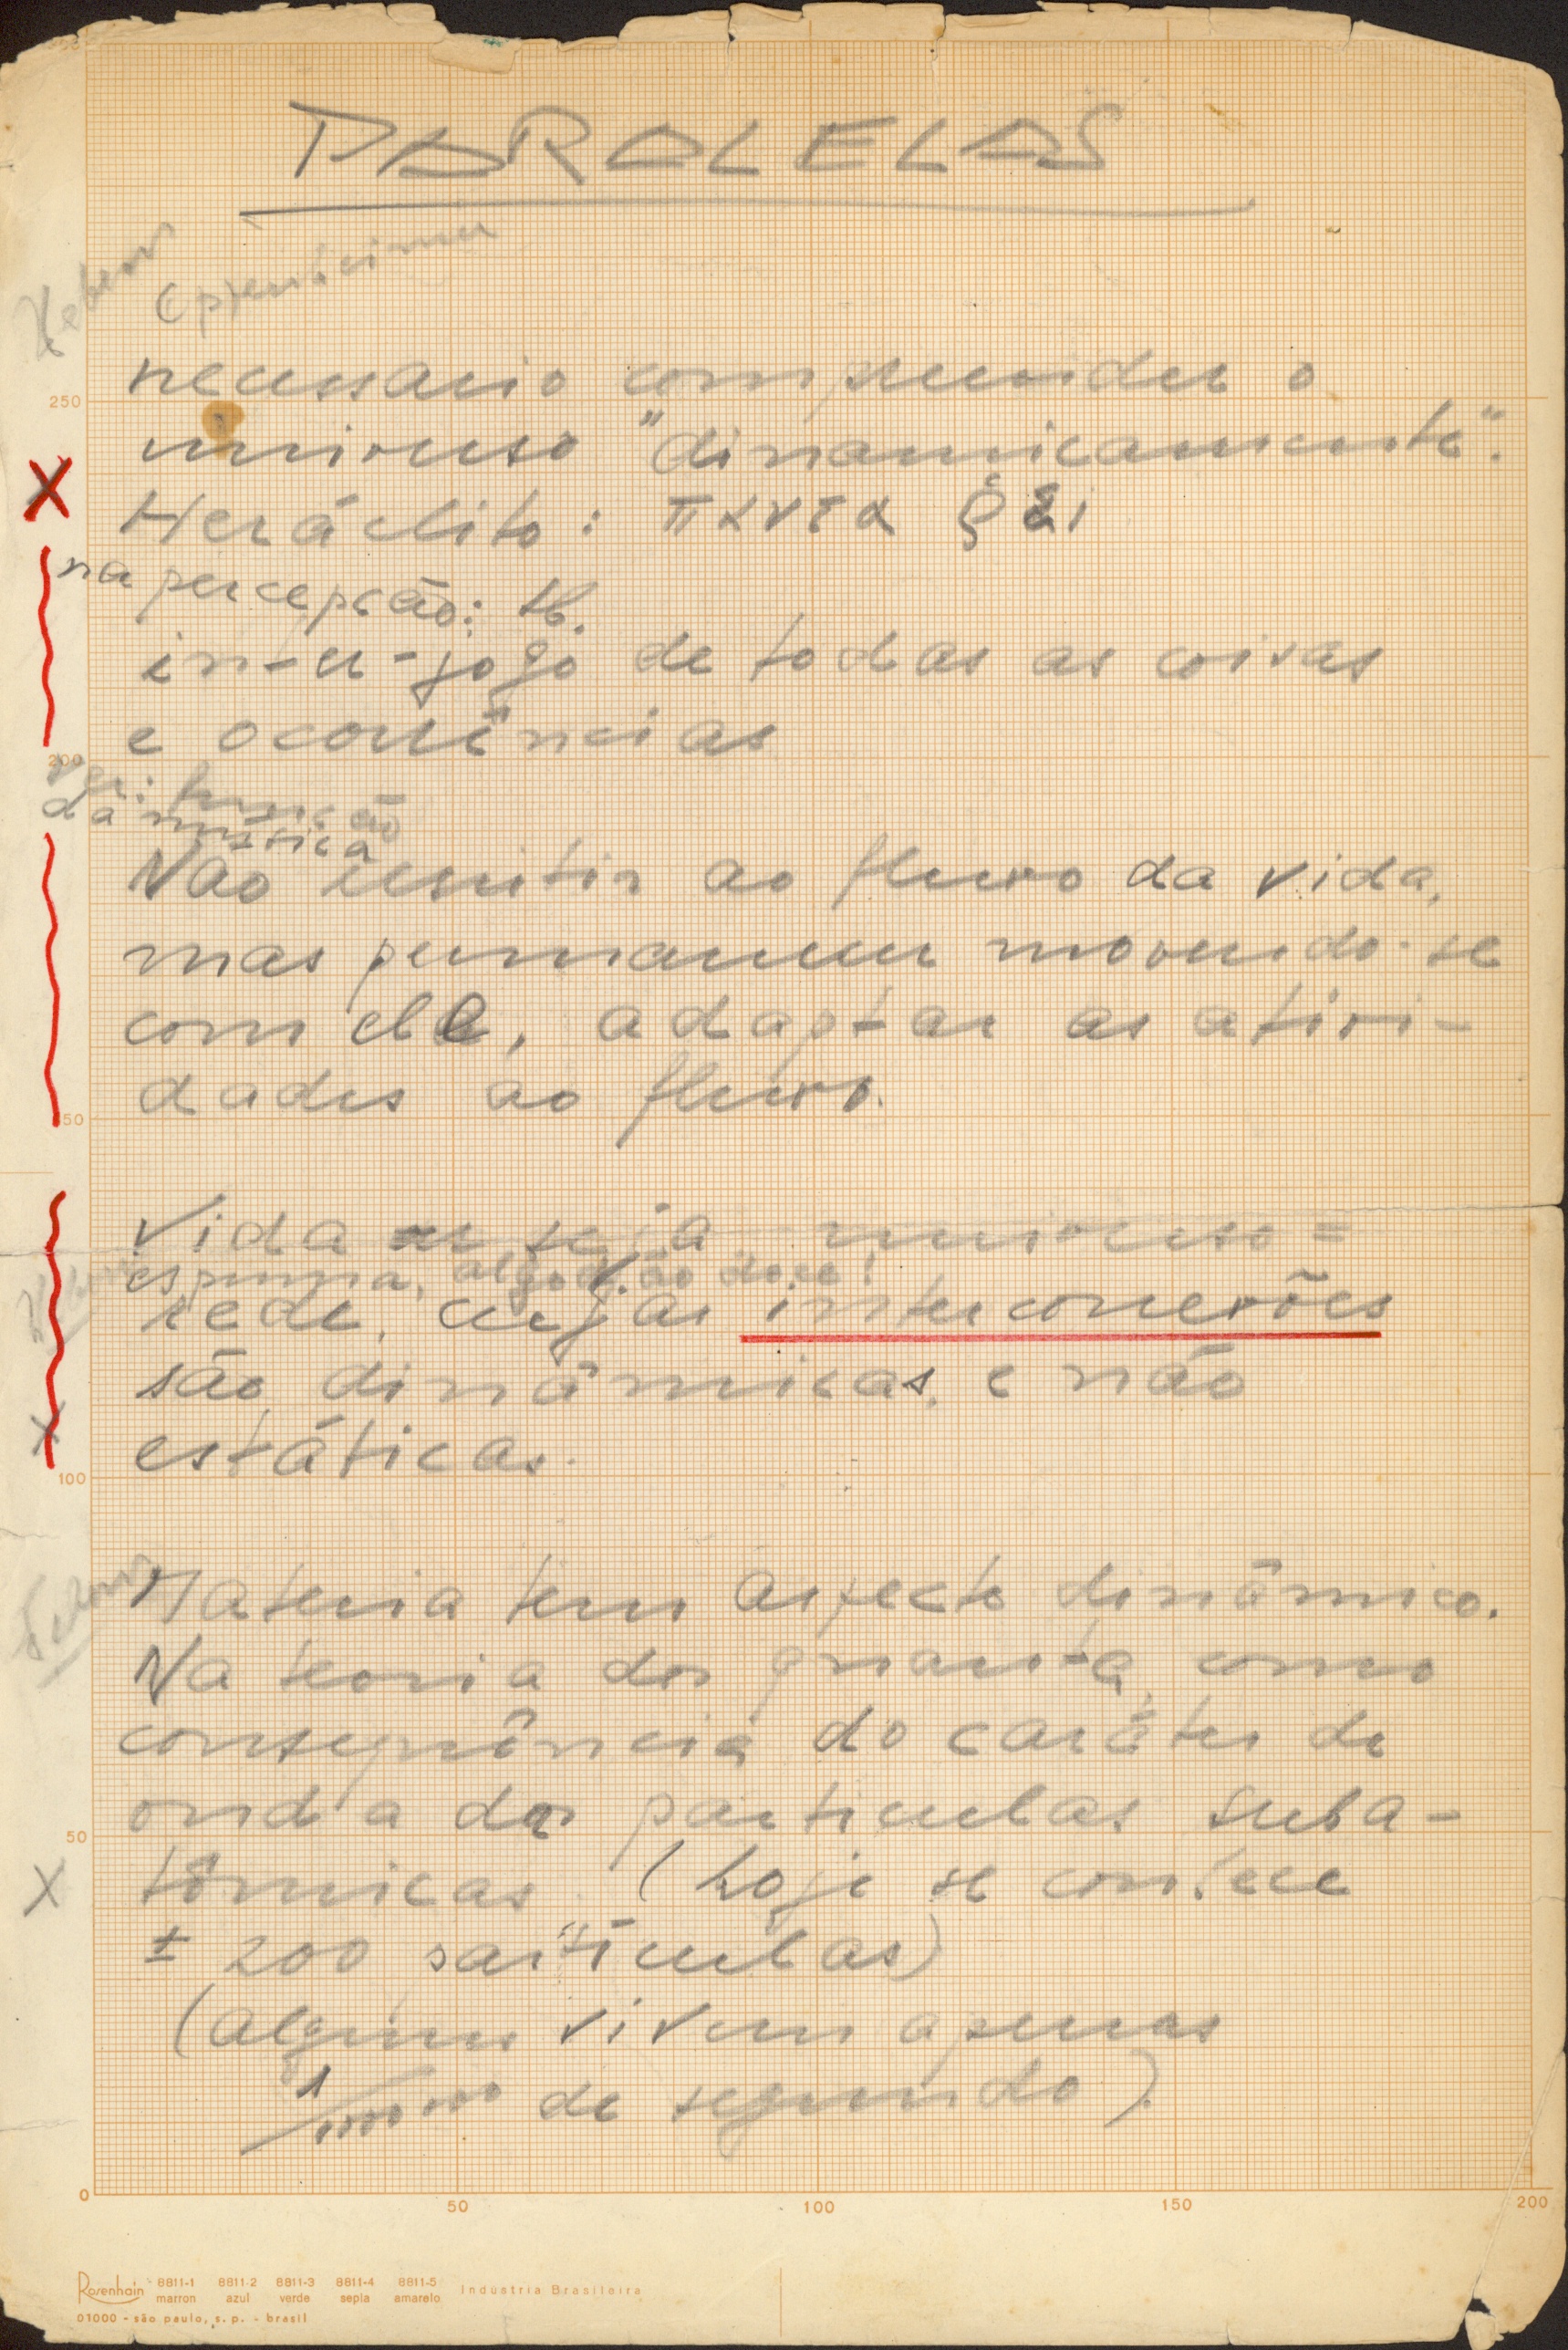 PARALELAS
necessario compreender o
universo "dinamicamente".
Heráclito: παντα ρει
na percepção: tb.
inter-jogo de todas as coisas
e ocorrências
ver: função
da música
Não resistir ao fluxo da vida,
mas permanecer movendo-se
com ele, adaptar as ativi-
dades ao fluxo.
Vida ou seja universo =
espuma, algodão doce!
rede, cujas interconexões
são dinâmicas, e não
estáticas.
Materia tem aspecto dinâmico.
Na teoria dos quanta, como
consequência do caráter de
onda das particulas suba-
tômicas. (hoje se conhece
± 200 partículas)
(algumas vivem apenas
de segundo).
250
200
150
100
50
0
50
100
150
200
Rosenhain 8811-1 8811-2 8811-3 8811-4 8811-5 Indústria Brasileira
marron azul verde sepia amarelo
01000 - são paulo, s. p. - brasil